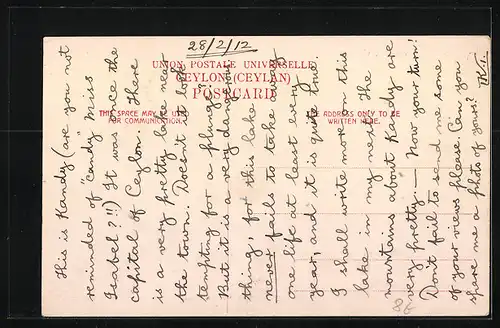 28/2/12
UNION POSTALE UNIVERSELLE
CEYLON (CEYLAN)
POSTCARD
THIS SPACE MAY USED
FOR COMMUNICATION.
THE ADDRESS ONLY TO BE
WRITTEN HERE.
This is Kandy (are you not
reminded of "candy" Miss
Isabel?!!) It was once the
capital of Ceylon. There
is a very pretty lake near
the town. Doesn't it look
tempting for a plunge?
But it is a very dangerous
thing, for this lake
never fails to take away
one life at least every
year, and it is quite true.
I shall write more on this
lake in my next. The
mountains about Kandy are
very pretty — Now your turn!
Don't fail to send me some
of your views please. Can you
spare me a photo of yours?
86